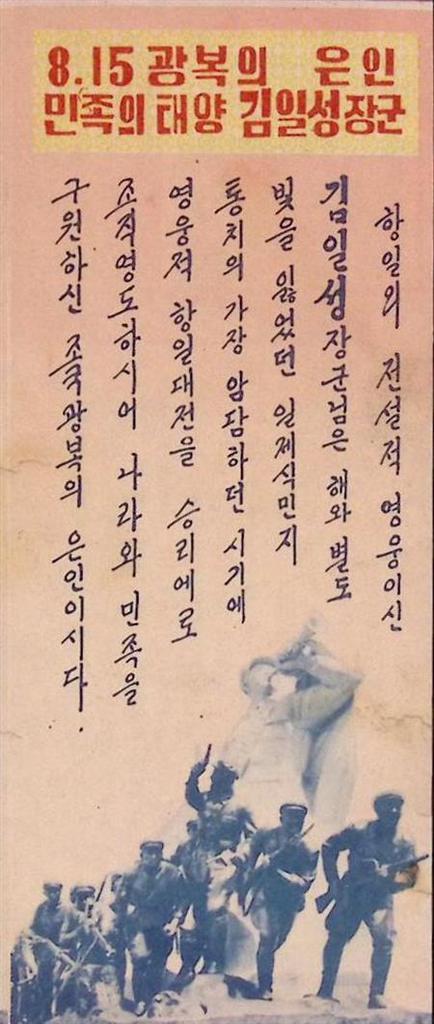 8.15 광복의 은인
민족의 태양 김일성장군
항일의 전설적 영웅이신
김일성장군님은 해와 별도
빛을 잃었던 일제식민지
통치의 가장 암담하던 시기에
영웅적 항일대전을 승리에로
조직영도하시어 나라와 민족을
구원하신 조국광복의 은인이시다.